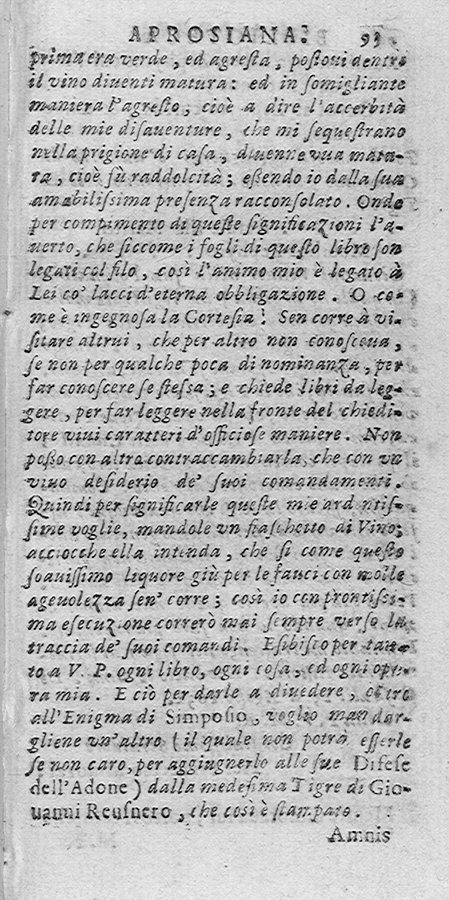 APROSIANA. 93
prima era verde, ed agresta, postoui dentro
il vino diuenti matura: ed in somigliante
maniera l'agresto, cioè a dire l'accerbità
delle mie disauenture, che mi sequestrano
nella prigione di casa, diuenne vua matu-
ra, cioè fù raddolcità; essendo io dalla sua
amabilissima presenza racconsolato. Onde
per compimento di queste significazioni l'a-
uerto, che siccome i fogli di questo libro son
legati col filo, così l'animo mio è legato à
Lei co' lacci d'eterna obbligazione. O co-
me è ingegnosa la Cortesia! Sen corre à vi-
sitare altrui, che per altro non conosceua,
se non per qualche poca di nominanza, per
far conoscere se stessa; e chiede libri da leg-
gere, per far leggere nella fronte del chiedi-
tore viui caratteri d'officiose maniere. Non
posso con altro contraccambiarla, che con vn
viuo desiderio de' suoi comandamenti.
Quindi per significarle queste mie ard ntis-
sime voglie, mandole vn fiaschetto di Vino;
acciocche ella intenda, che si come questo
soauissimo liquore giù per le fauci con molle
ageuolezza sen' corre; così io con prontissi-
ma esecuzione correrò mai sempre verso la
traccia de' suoi comandi. Esibisco per tan-
to a V. P. ogni libro, ogni cosa, ed ogni ope-
ra mia. E ciò per darle a diuedere, oltre
all'Enigma di Simposio, voglio mandar-
gliene vn'altro (il quale non potrà esserle
se non caro, per aggiugnerlo alle sue Difese
dell'Adone) dalla medesima Tigre di Gio-
uanni Reusnero, che così è stampato.
Amnis